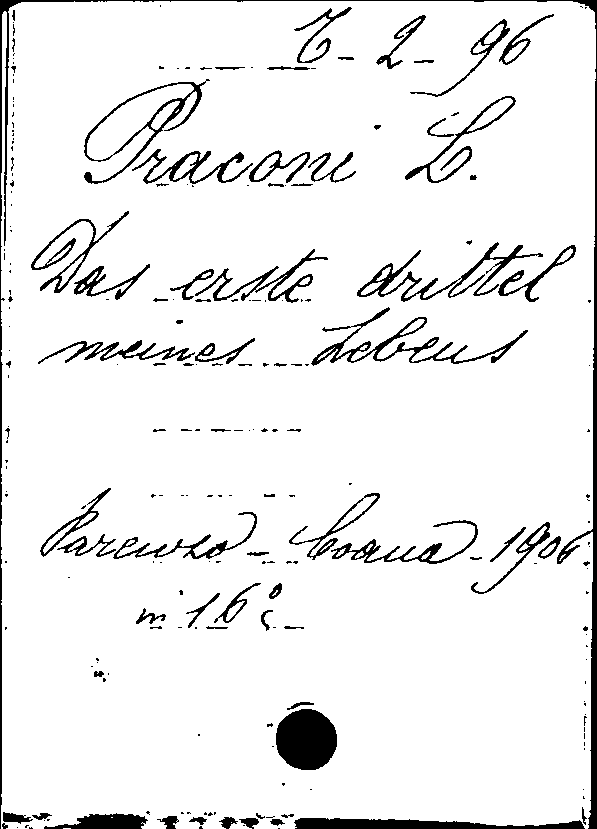 6-2-96
Praconi L.
Das erste drittel
meines Lebens
Parenzo - Coana - 1906
in 16°